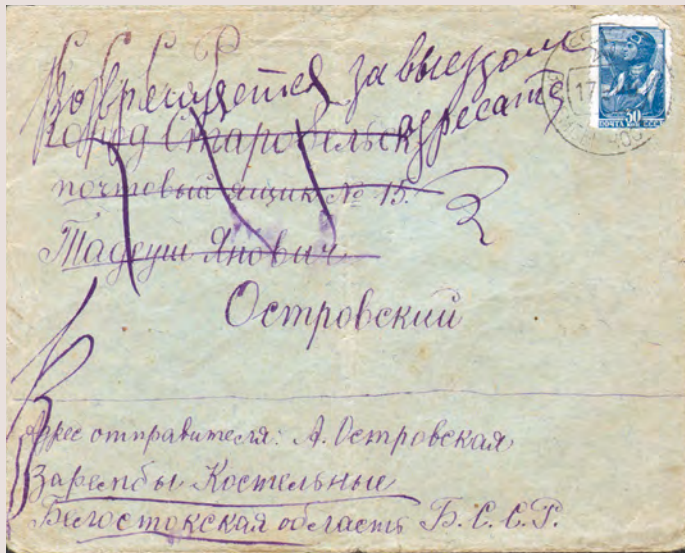 С.С.С.Р.
Возвращается за выездом
адресата
город Старобельск
почтовый ящик № 15.
Тадеуш Янович
Островский
17
30
ПОЧТА СССР
Адрес отправителя: А. Островская
Зарембы Костельные
Белостокская область Б.С.С.Р.